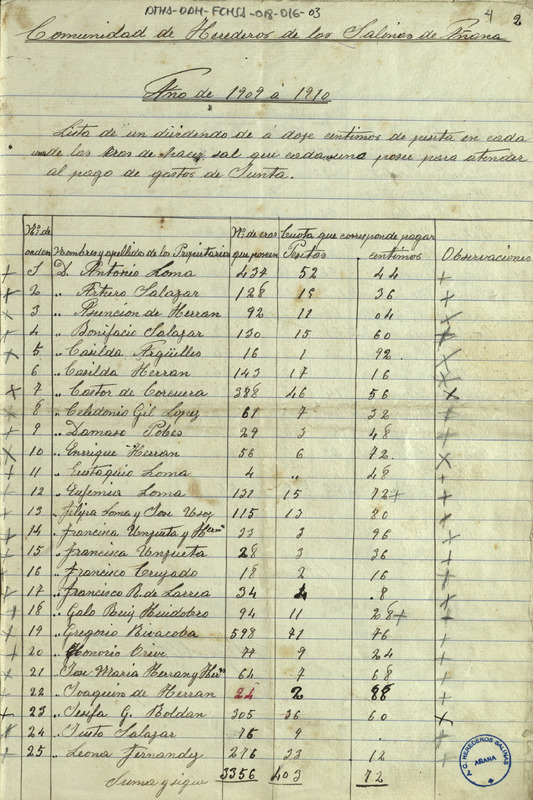 DTHA-DAH-FCHSA-018-016-03
4 2
Comunidad de Herederos de las Salinas de Añana
Año de 1909 á 1910
Lista de un dividendo de á doze centimos de peseta en cada
una de las Eras de hacer sal que cada una posee para atender
al pago de gastos de Junta.
Nº. de orden Nombres y apellidos de los Propietarios Nº. de eras que poseen Cuota que corresponde pagar Pesetas centimos Observaciones
1 D. Antonio Loma 437 52 44
2 " Arturo Salazar 128 15 36
3 " Asuncion de Herran 92 11 04
4 " Bonifacio Salazar 130 15 60
5 " Casilda Argüelles 16 1 92
6 " Casilda Herran 143 17 16
7 " Castor de Corcuera 388 46 56
8 " Celedonio Gil Lopez 61 7 32
9 " Damaso Pobes 29 3 48
10 " Enrique Herran 56 6 72
11 " Eustaquio Loma 4 " 48
12 " Eufemia Loma 131 15 72
13 " Felipa Loma y Jose 115 13 80
14 " Francisca Unzueta y Herm 33 3 96
15 " Francisca Unzueta 28 3 36
16 " Francisco Cruzado 18 2 16
17 " Francisco R. de Larrea 34 4 8
18 " Galo Ruiz Huidobro 94 11 28
19 " Gregorio Bicacoba 598 71 76
20 " Honorio Orive 77 9 24
21 " Jose Maria Herran y Herm 64 7 68
22 " Joaquin de Herran 24 2 88
23 " Josefa G. Roldan 305 36 60
24 " Justo Salazar 75 9 .
25 " Leona Fernandez 276 33 12
Suma y sigue 3356 403 72
A.C. HEREDEROS SALINAS
AÑANA